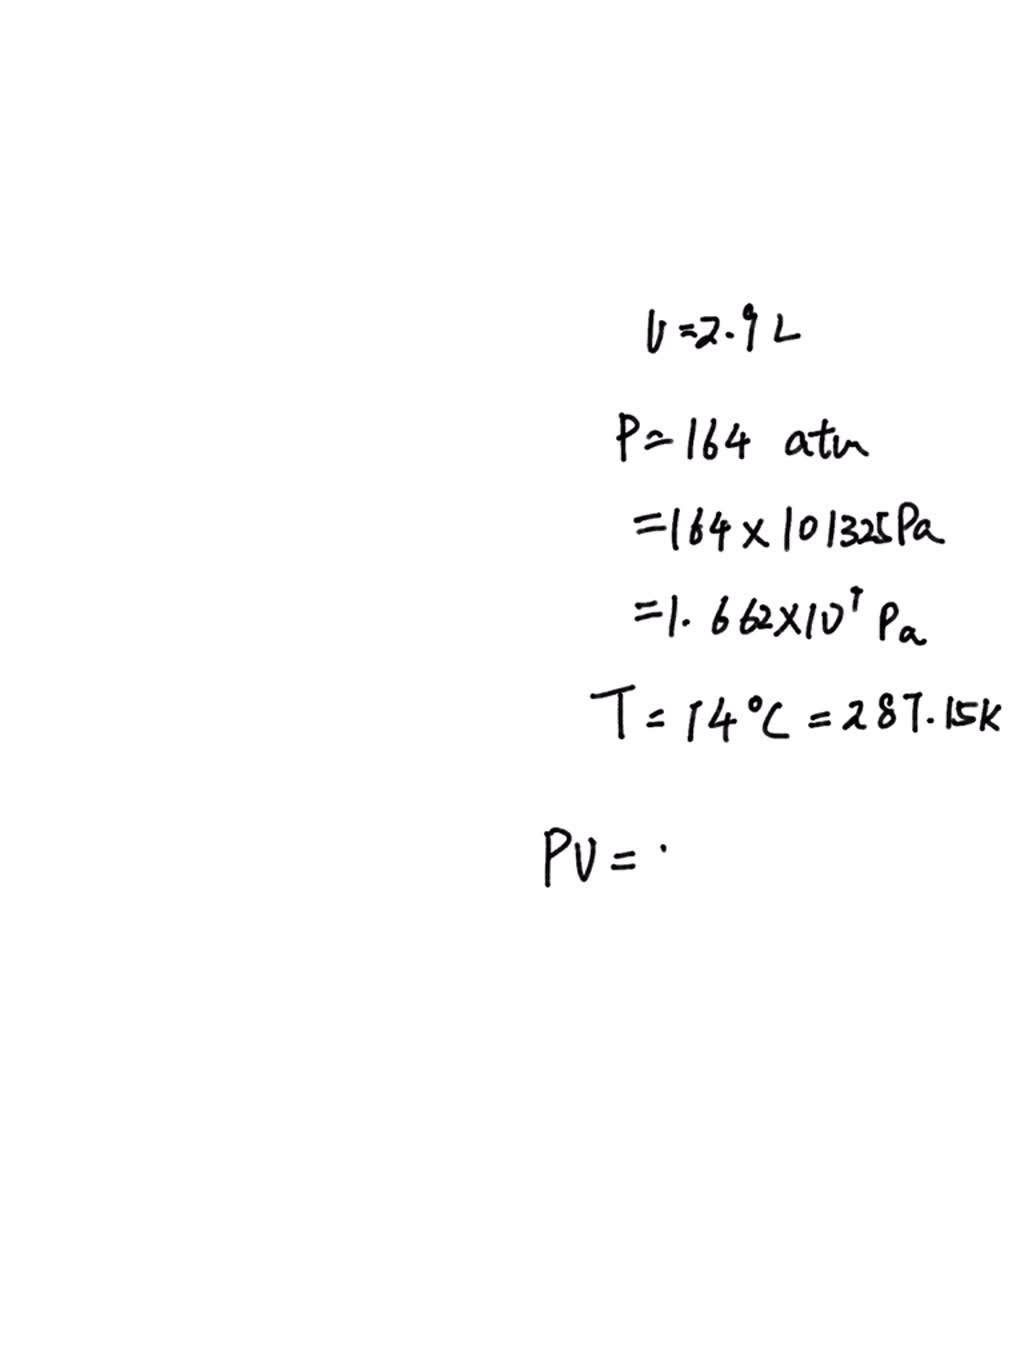 V=2.9L
P=164 atm
=164×101325Pa
=1.662×10⁷ Pa
T=14°C=287.15K
PV=